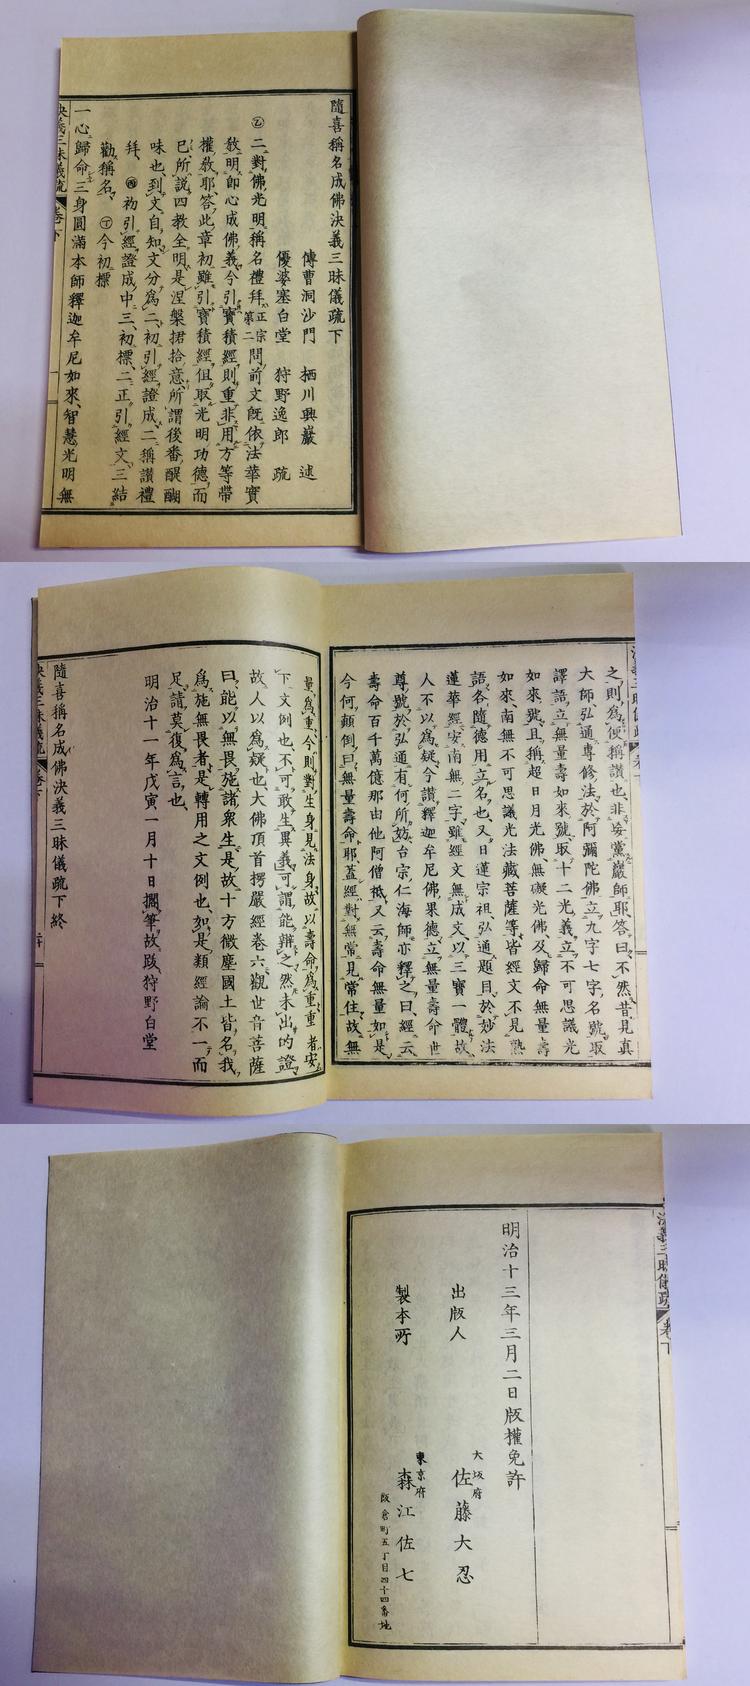 隨喜稱名成佛決義三昧儀疏下
傳曹洞沙門 栖川興巖 述
優婆塞白堂 狩野逸郎 疏
㋛二對佛光明稱名禮拜正宗第二問前文既依法華實
敎明卽心成佛義今引寶積經則重非用方等帶
權敎耶答此章初雖引寶積經但取光明功德而
已所說四教全明是涅槃捃拾意所謂後番醍醐
味也到文自知文分爲二初引經證成二稱讚禮
拜㊄初引經證成中三初標二正引經文三結
勸稱名㊀今初標
一心歸命三身圓滿本師釋迦牟尼如來智慧光明無
決義三昧儀疏 卷下 一
決義三昧儀疏 卷下
之則爲便稱讚也非妄黨巖師耶答曰不然昔見眞
大師弘通專修法於阿彌陀佛立九字七字名號取
譯語立無量壽如來號取十二光義立不可思議光
如來號且稱超日月光佛無礙光佛及歸命無量壽
如來南無不可思議光法藏菩薩等皆經文不見熟
語各隨德用立名也又日蓮宗祖弘通題目於妙法
蓮華經安南無二字雖經文無成文以三寶一體故
人不以爲疑今讚釋迦牟尼佛果德立無量壽命世
尊號於弘通有何所妨台宗仁海師亦釋之曰經云
壽命百千萬億那由他阿僧祇又云壽命無量如是
今何顚倒曰無量壽命耶蓋經對無常見常住故無
量爲重今則對生身見法身故以壽命爲重重者安
下文例也不可敢生異義可謂能辨之然未出的證
故人以爲疑也大佛頂首楞嚴經卷六觀世音菩薩
曰能以無畏施諸衆生是故十方微塵國土皆名我
爲施無畏者是轉用之文例也如是類經論不一而
足請莫復爲言也
明治十一年戊寅一月十日擱筆故跋狩野白堂
隨喜稱名成佛決義三昧儀疏下終
決義三昧儀疏 卷下
決義三昧儀疏 卷下
明治十三年三月二日版權免許
出版人 大坂府 佐藤大忍
製本所 東京府 森江佐七
飯倉町五丁目四十四番地